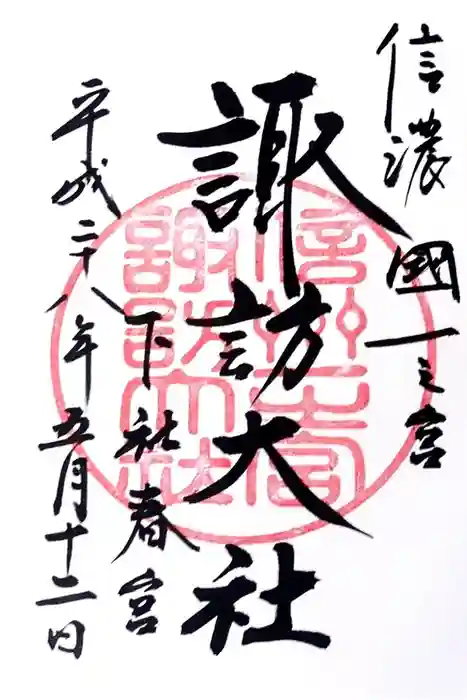 信濃國一之宮
諏訪大社
下社春宮
平成二十八年五月十二日
信州一之宮
諏訪大社